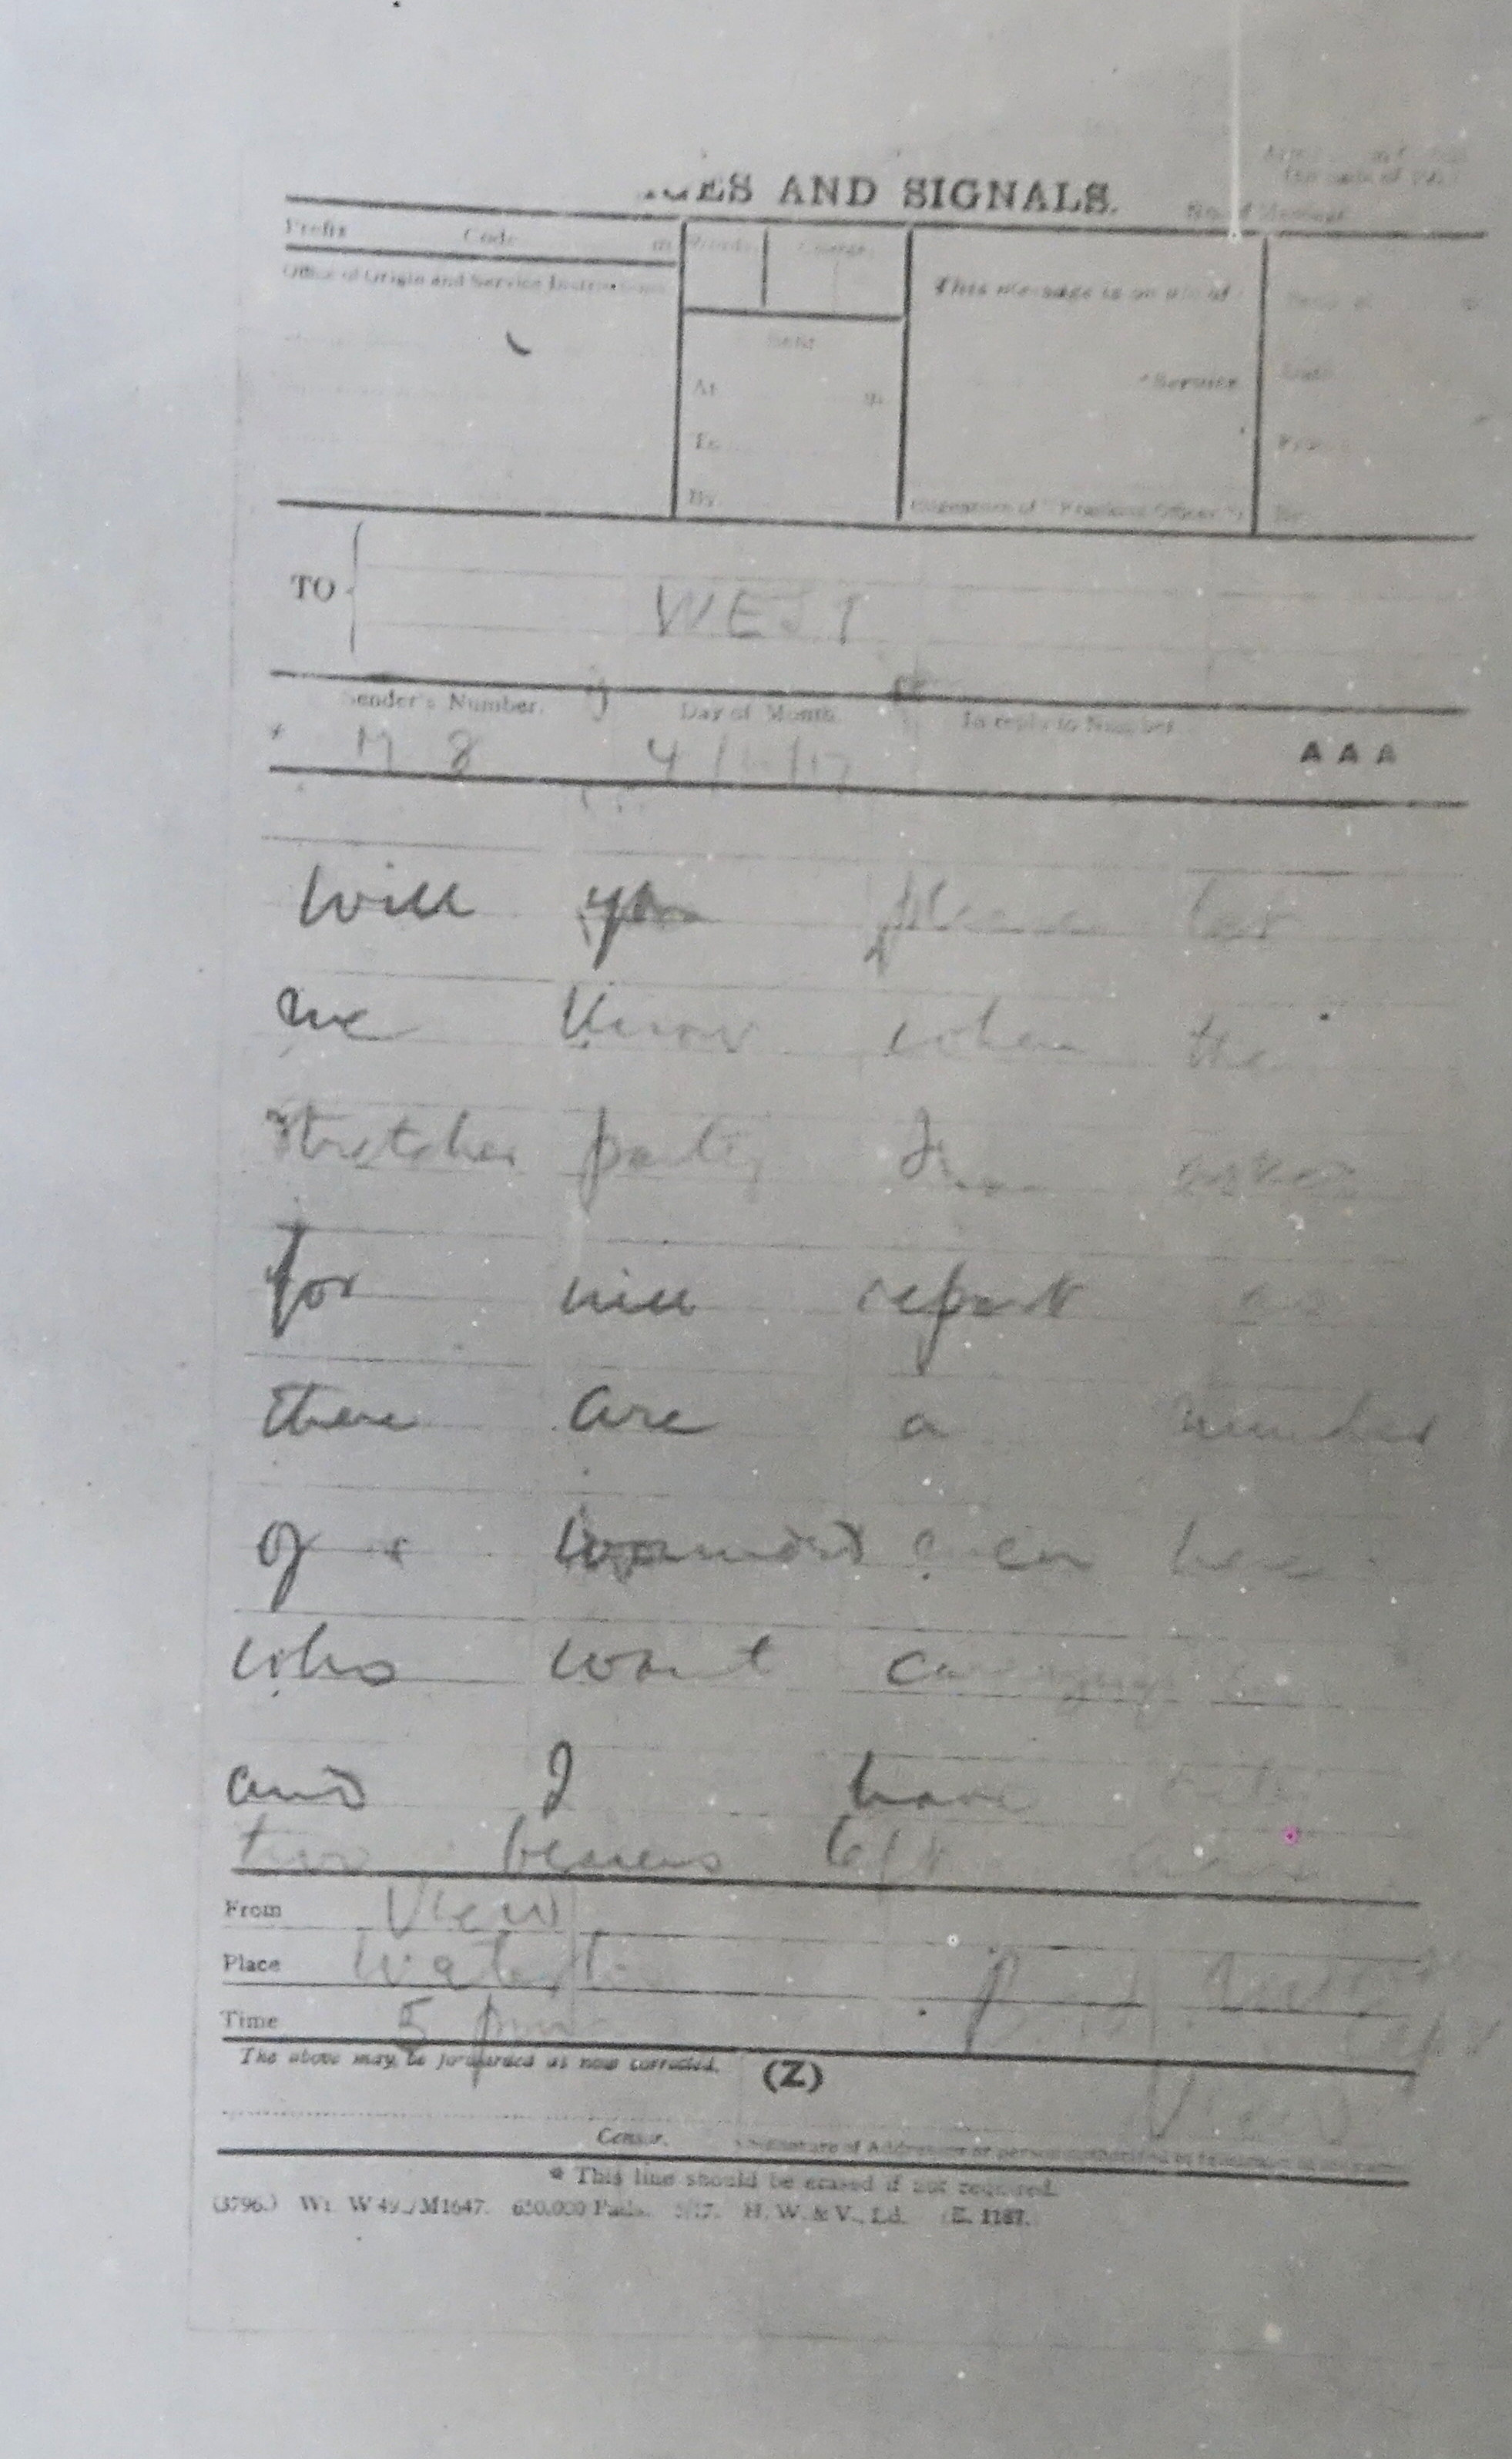 AND SIGNALS.
Prefix Code m
Office of Origin and Service Instructions
Words Charge
This message is on a/c of
Sent
At m.
To
By
Service
(Signature of "Franking Officer")
TO WEST
Sender's Number. Day of Month. In reply to Number
* M 8 4/ /17 AAA
will you please let
me know when the
stretcher party I asked
for will report as
there are a number
of wounded men here
who want carrying
and I have only
two bearers left
From View
Place
Time 5 pm
The above may be forwarded as now corrected. (Z)
View
Censor. Signature of Addressor or person authorised to telegraph in his name
* This line should be erased if not required.
(3796.) Wt. W 492/M1647. 650,000 Pads. 5/17. H. W. & V., Ld. (E. 1187.)